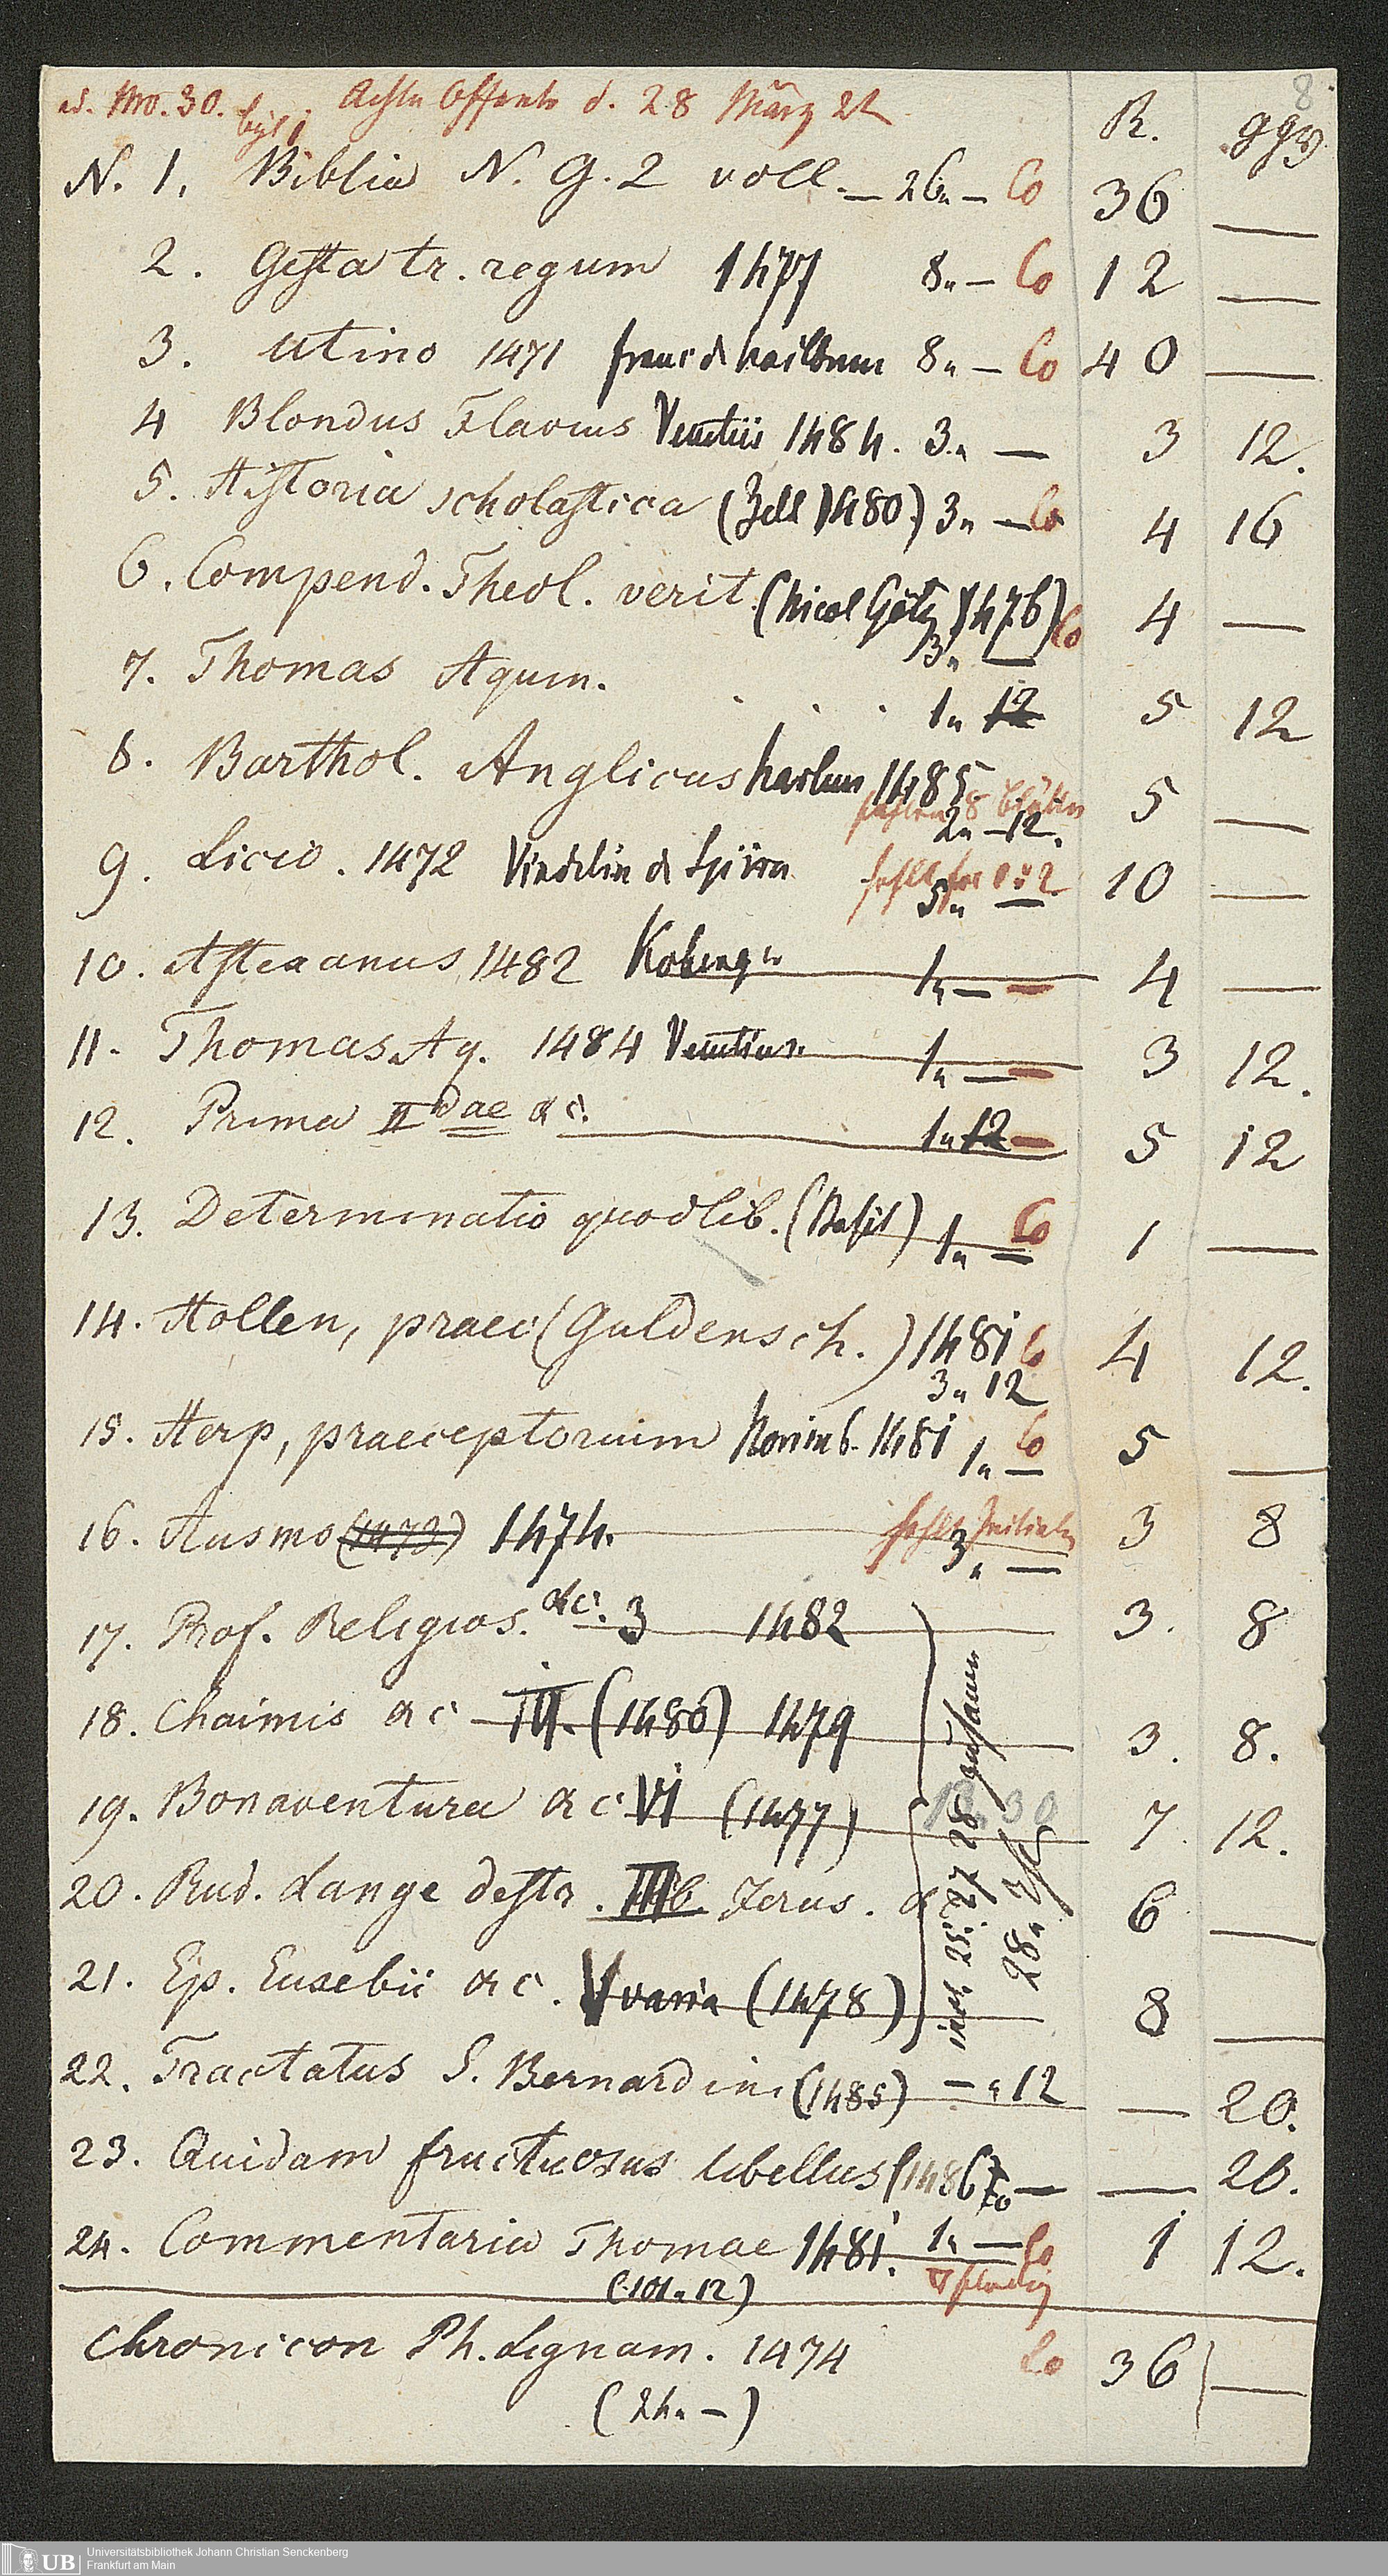 ad. Nro. 30. Achte Offerte d. 28 März 22 8.
R. ggr
N. 1. Biblia N. G. 2 voll. — 26„ — Co 36 —
2. Gesta tr. regum 1477 8„ — Co 12 —
3. Utino 1471 8„ — Co 40 —
4 Blondus Flavius Venetiis 1484. 3„ — 3 12.
5. Historia scholastica (Zell 1480) 3„ — Co 4 16
6. Compend. Theol. verit. (Nicol Götz 1476) Co 4 —
3„ —
7. Thomas Aquin. . . . 1„ 12 5 12
8. Barthol. Anglicus 1485 5 —
fehlen 8 Blätter
2„ — 12.
9. Licio. 1472 Vindelin de Spira fehlt fol 1 : 2 10 —
5„ —
10. Astexanus 1482 Koberger 1„ — — 4 —
11. Thomas Aq. 1484 Venetiis 1„ — — 3 12.
12. Prima II dae &c. 1„ 12 — 5 12
13. Determinatio quodlib. (Basil) 1„ — Co 1 —
14. Hollen, praec (Guldensch.) 1481 Co 4 12.
3„ 12
15. Herp, praeceptorium Norimb. 1481 1„ — Co 5 —
16. Ausmo (1473) 1474. fehlt Initiale 3 8
3„ —
17. Prof. Religios. &c. 3 1482 3. 8
18. Chaimis &c III. (1480) 1479 3. 8.
19. Bonaventura &c. VI (1477) 7. 12.
20. Rud. Lange destr. Jerus. & 6 —
21. Ep. Eusebii &c. V varia (1478) 8 —
incl. 25. 27 28 zusammen
28„
22. Tractatus S. Bernardini (1485) — „ 12 — 20.
23. Quidam fructuosus libellus (1486) Co — — 20.
24. Commentaria Thomae 1481. 1„ — Co 1 12.
(101„ 12)
Chronicon Ph. Lignam. 1474 Co 36 —
(24„ —)
UB Universitätsbibliothek Johann Christian Senckenberg
Frankfurt am Main